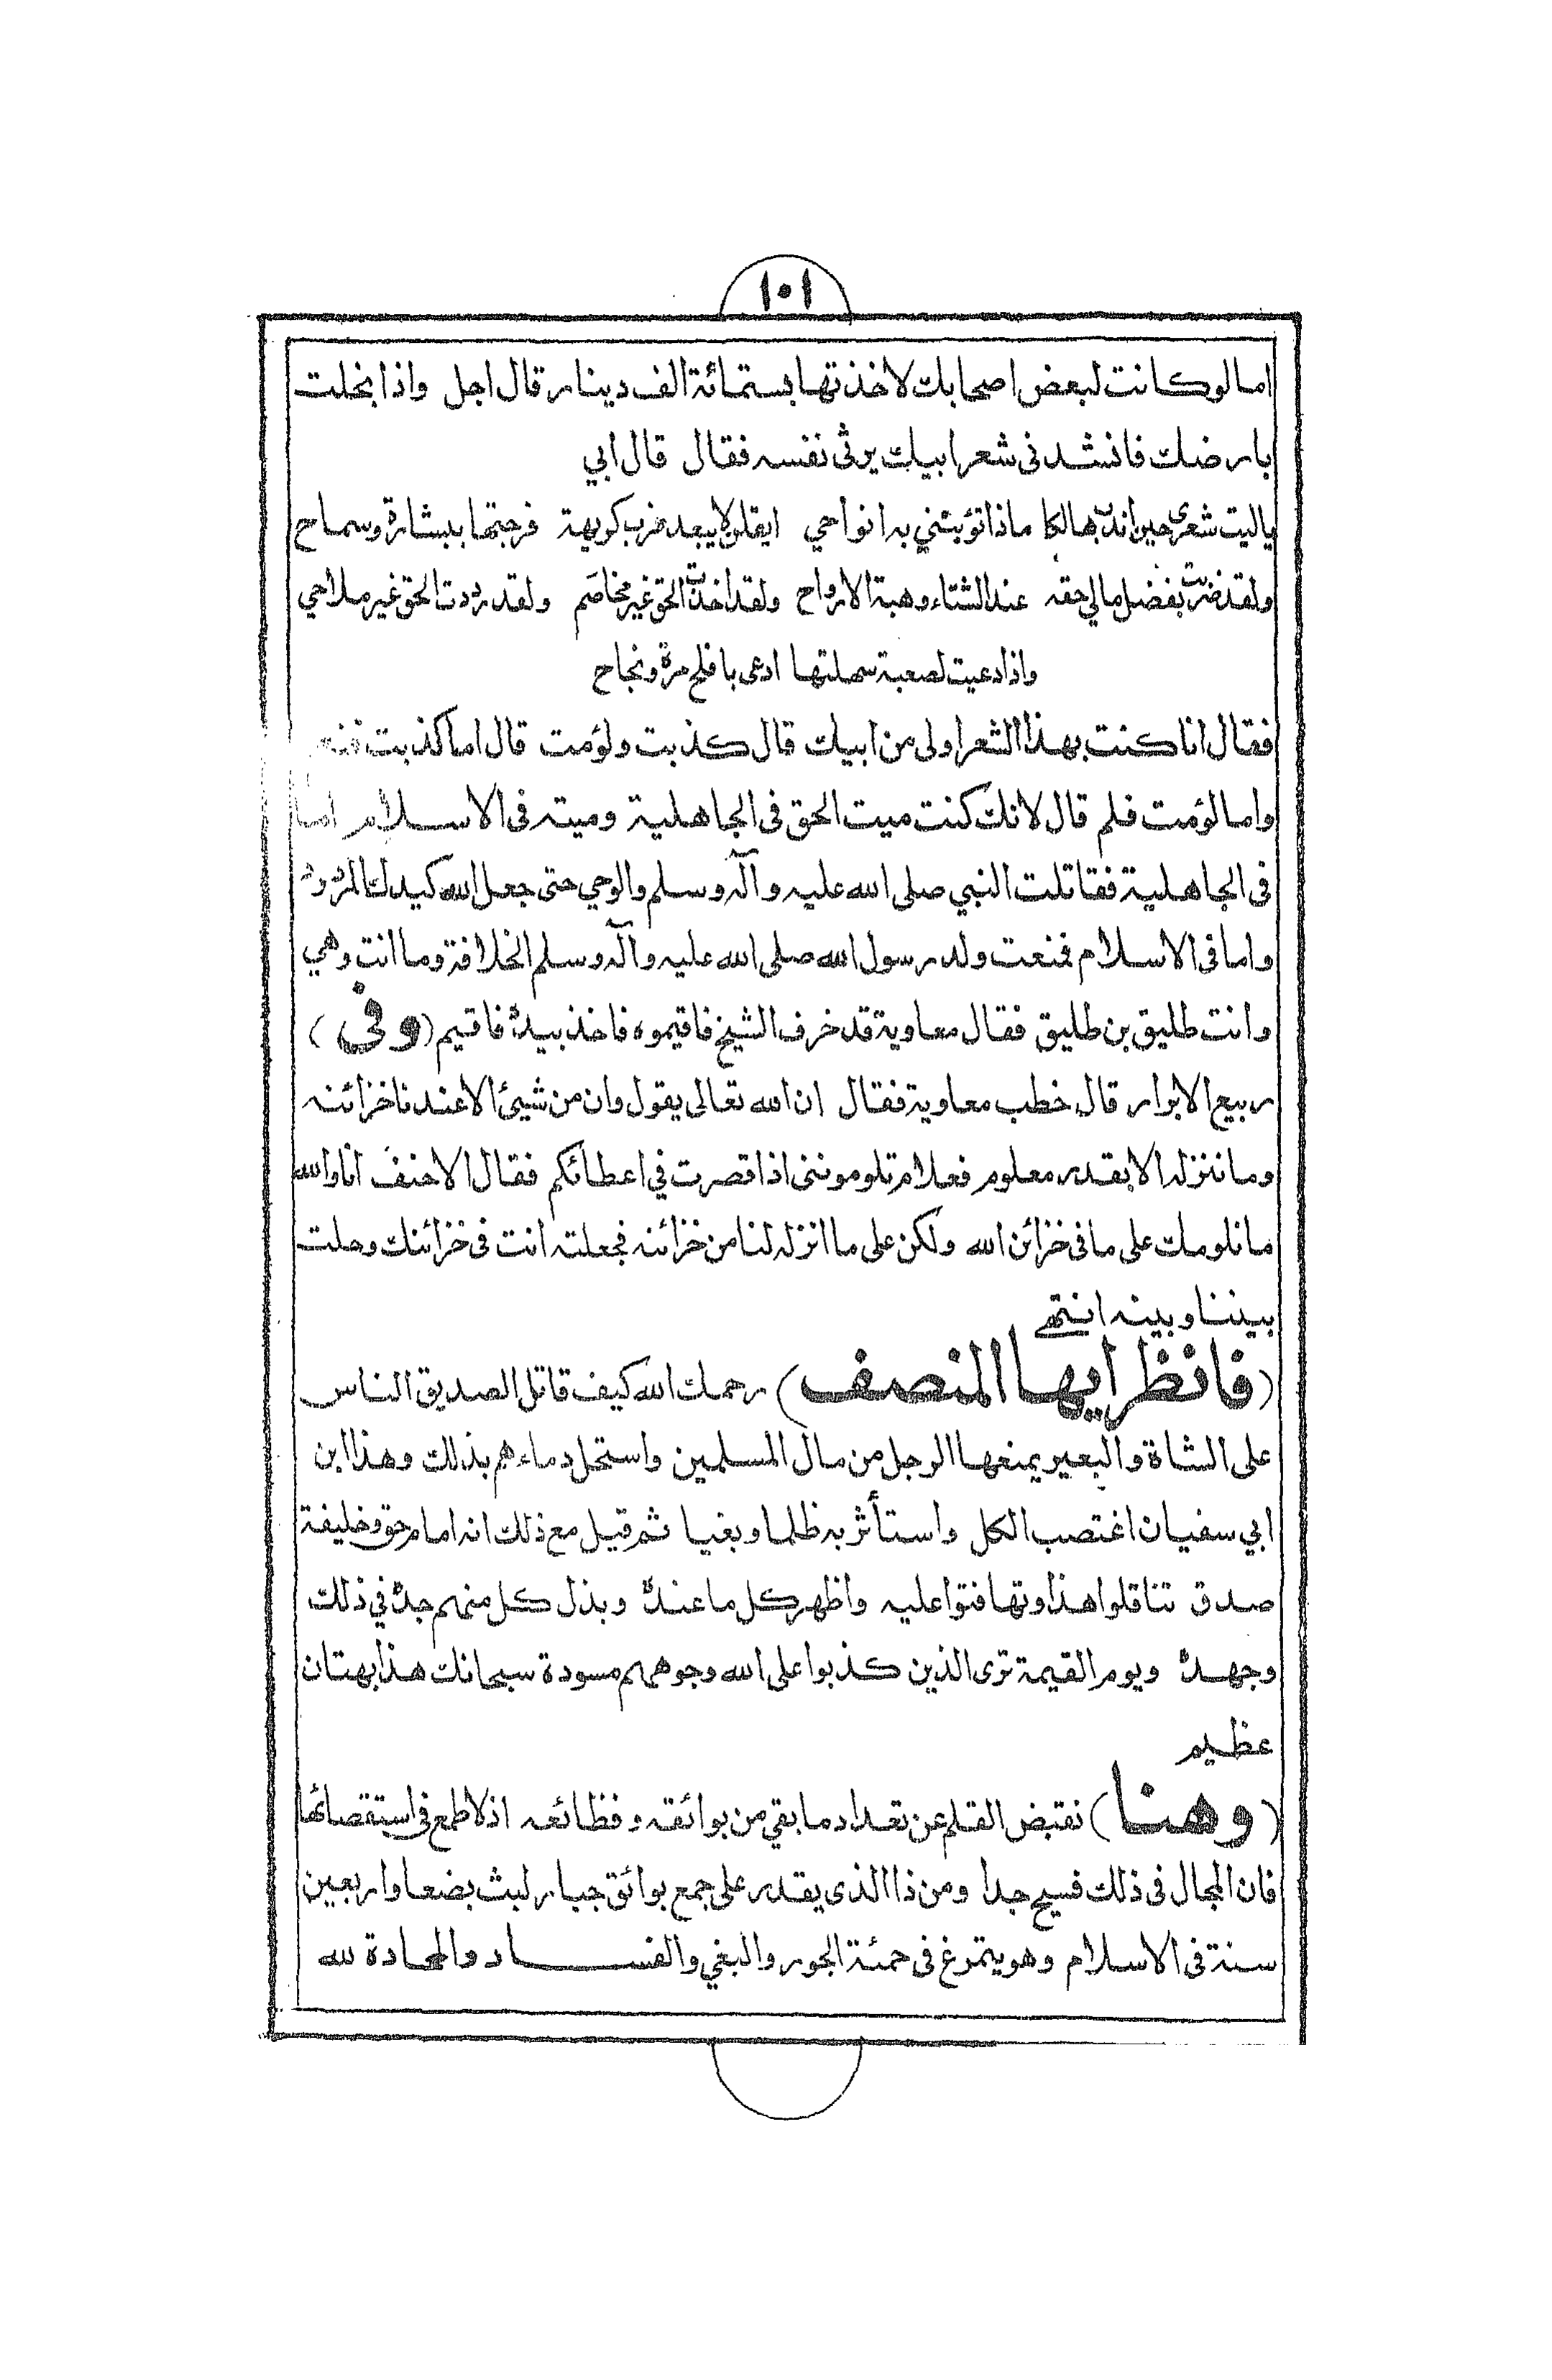 ١٠١
اما لو كانت لبعض اصحابك لاخذتها بستمائة الف دينار قال اجل واذا بخلت
بارضك فانشدنى شعر ابيك يرثى نفسه فقال قال ابي
ياليت شعرى حين اندب هالكا ماذا تؤبننى به انواحي ايقلن لا يبعد فرب كريهة فرجتها ببشارة وسماح
ولقد ضربت بفضل مالي حقه عند الشتاء وهبة الارواح ولقد اخذت الحق غير مخاصم ولقد رددت الحق غير ملاحي
واذا دعيت لصعبة سهلتها ادعى بافلح مرة ونجاح
فقال انا كنت بهذا الشعر اولى من ابيك قال كذبت ولؤمت قال اما كذبت
واما لؤمت فلم قال لانك كنت ميت الحق فى الجاهلية وميته فى الاسلام اما
فى الجاهلية فقاتلت النبي صلى الله عليه وآله وسلم والوحي حتى جعل الله كيدك المردود
واما فى الاسلام فمنعت ولد رسول الله صلى الله عليه وآله وسلم الخلافة وما انت وهي
وانت طليق بن طليق فقال معاوية قد خرف الشيخ فاقيموه فاخذ بيده فاقيم (وفى)
ربيع الابرار قال خطب معاوية فقال ان الله تعالى يقول وان من شيئ الا عندنا خزائنه
وما ننزله الا بقدر معلوم فعلام تلوموننى اذا قصرت في اعطائكم فقال الاحنف انا والله
ما نلومك على ما فى خزائن الله ولكن على ما انزله لنا من خزائنه فجعلته انت فى خزائنك وحلت
بيننا وبينه انتهى
(فانظر ايها المنصف) رحمك الله كيف قاتل الصديق الناس
على الشاة والبعير يمنعها الرجل من مال المسلمين واستحل دماءهم بذلك وهذا ابن
ابي سفيان اغتصب الكل واستأثر به ظلما وبغيا ثم قيل مع ذلك انه امام حق وخليفة
صدق تناقلوا هذا وتهافتوا عليه واظهر كل ما عنده وبذل كل منهم جده في ذلك
وجهده ويوم القيمة ترى الذين كذبوا على الله وجوههم مسودة سبحانك هذا بهتان
عظيم
(وهنا) نقتبض القلم عن تعداد ما بقي من بوائقه وفظائعه اذ لا طمع فى استقصائها
فان المجال فى ذلك فسيح جدا ومن ذا الذى يقدر على جمع بوائق جبار لبث بضعا واربعين
سنة فى الاسلام وهو يتمرغ فى حمئة الجور والبغي والفساد والمحادة لله